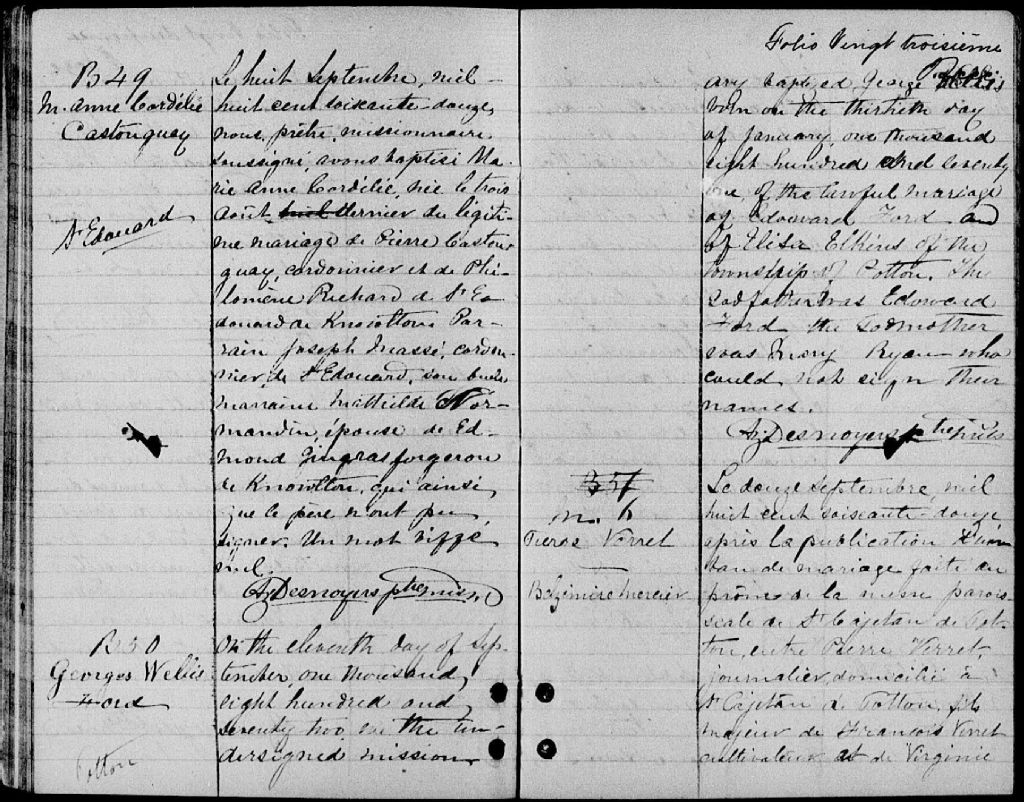 B 49
M. Anne Cordélie
Castonguay
St Edouard
Le huit Septembre, mil
huit cent soixante-douze,
nous, prêtre, missionnaire
soussigné, avons baptisé Ma-
rie Anne Cordélie, née le trois
août dernier du légiti-
me mariage de Pierre Caston-
guay, cordonnier et de Phi-
lomène Richard de St Ed-
douard de Knowlton. Par-
rain Joseph Massé, cordon-
nier, de St Edouard,
marraine Mathilde Nor-
mandin, épouse de Ed-
mond Gingras forgeron
de Knowlton, qui ainsi
que le père n'ont pu
signer. Un mot biffé
nul.
Az. Desnoyers ptre miss.
B 50
Georges Wellis
Ford
Potton
On the eleventh day of Sep-
tember, one thousand
eight hundred and
seventy two, we the un-
dersigned mission-
Folio Vingt troisième
ary baptized George
born on the thirtieth day
of January, one thousand
eight hundred and seventy
one, of the lawful mariage
of Edouvard Ford and
of Elisa Elkins of the
township of Potton. The
Godfather was Edowerd
Ford the Godmother
was Mary Ryan who
could not sign their
names.
Az. Desnoyers ptre
B 51
M. 6
Verret
Mercier
Le douze septembre, mil
huit cent soixante-douze
après la publication d'un
ban de mariage faite au
prône de la messe parois-
siale de St Cajetan de Pot-
ton, entre Pierre Verret,
journalier, domicilié à
St Cajetan de Potton, fils
majeur de François Verret
cultivateur et de Virginie